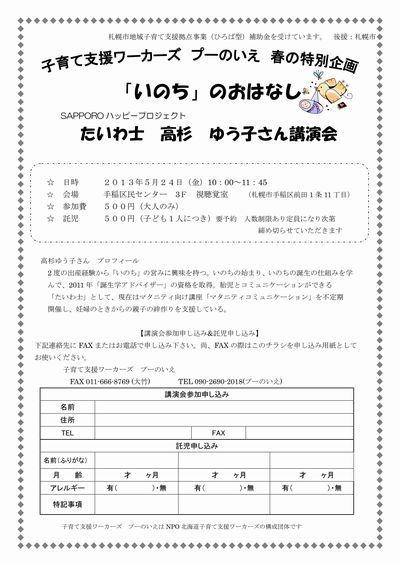 札幌市地域子育て支援拠点事業（ひろば型）補助金を受けています。 後援：札幌市
子育て支援ワーカーズ プーのいえ 春の特別企画
「いのち」のおはなし
SAPPORO ハッピープロジェクト
たいわ士 高杉 ゆう子さん講演会
☆ 日時 ２０１３年５月２４日（金）10：00～11：45
☆ 会場 手稲区民センター 3F 視聴覚室 （札幌市手稲区前田１条 11 丁目）
☆ 参加費 ５００円（大人のみ）
☆ 託児 ５００円（子ども１人につき）要予約 人数制限あり定員になり次第
締め切らせていただきます
高杉ゆう子さん プロフィール
２度の出産経験から「いのち」の営みに興味を持つ。いのちの始まり、いのちの誕生の仕組みを学
んで、2011 年「誕生学アドバイザー」の資格を取得。胎児とコミュニケーションができる
「たいわ士」として、現在はマタニティ向け講座「マタニティコミュニケーション」を不定期
開催し、妊婦のときからの親子の絆作りを支援している。
【講演会参加申し込み&託児申し込み】
下記連絡先に FAX またはお電話で申し込み下さい。尚、FAX の際はこのチラシを申し込み用紙として
お使いください。
子育て支援ワーカーズ プーのいえ
FAX 011-666-8769 (大竹) TEL 090-2690-2018(プーのいえ)
講演会参加申し込み
名前
住所
TEL FAX
託児申し込み
名前(ふりがな)
月 齢 才 ヶ月 才 ヶ月
アレルギー 有（ ）・無 有（ ）・無
特記事項
子育て支援ワーカーズ プーのいえは NPO 北海道子育て支援ワーカーズの構成団体です